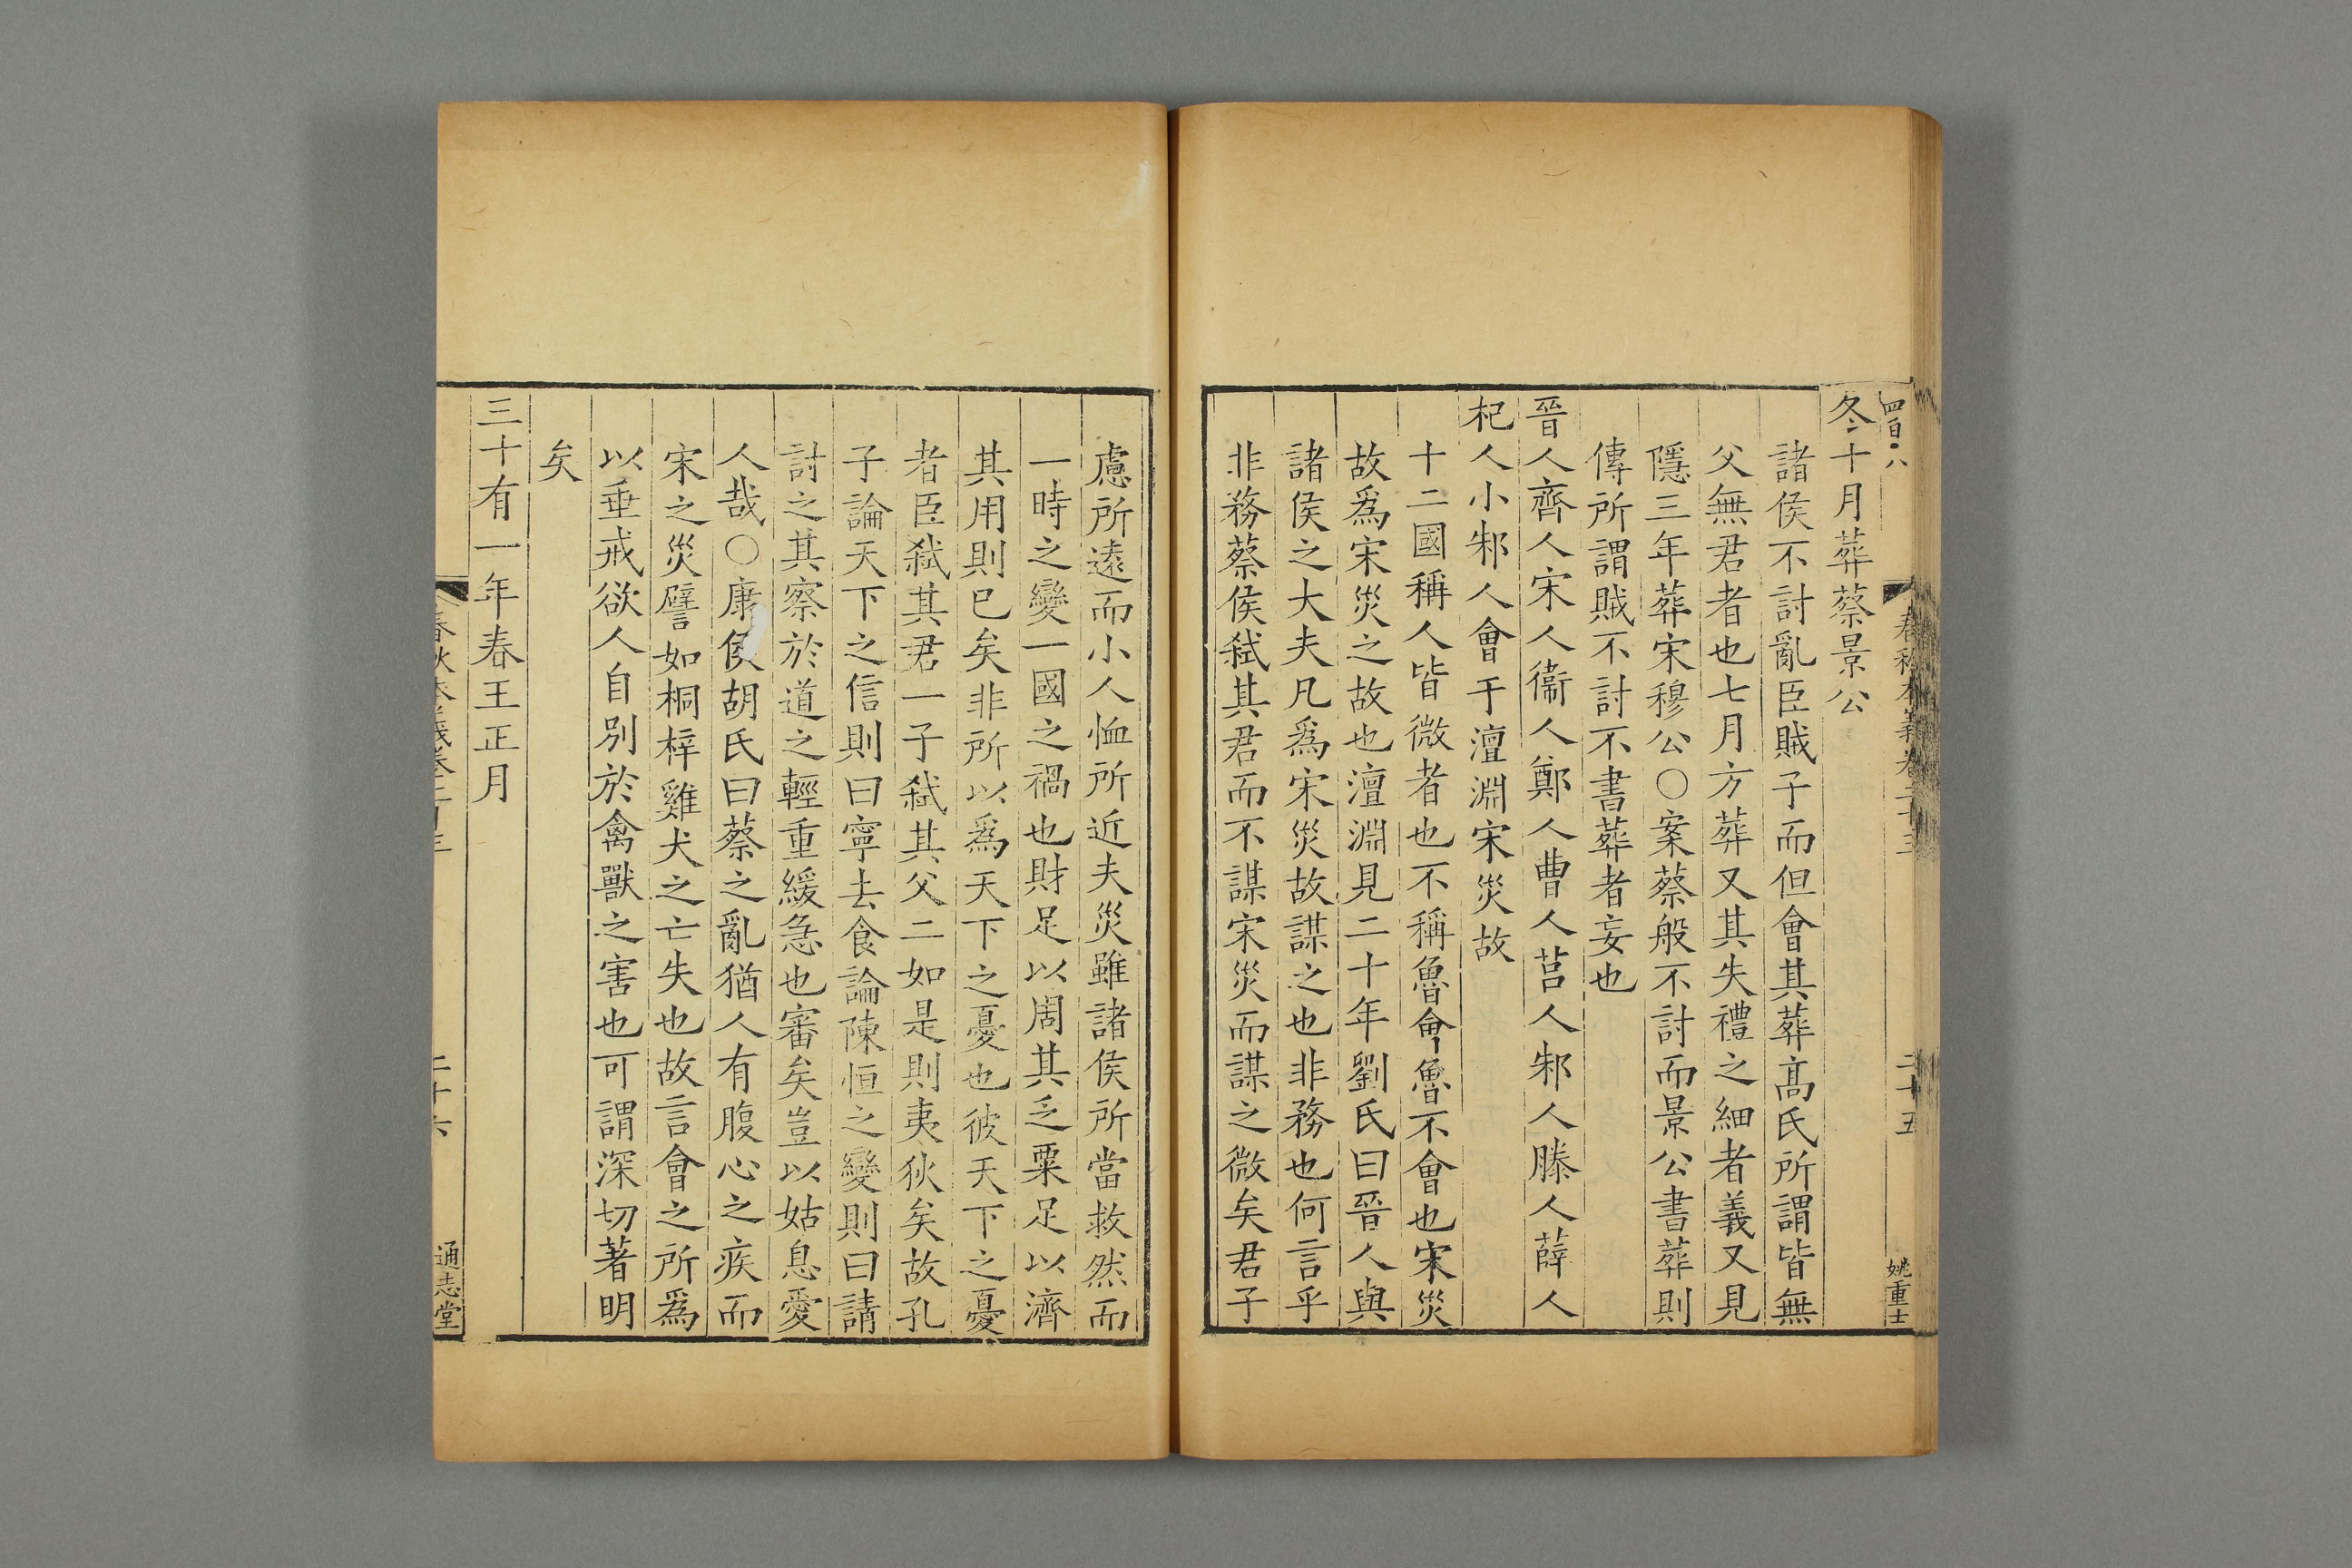 四百·八
春秋本義卷二十三
二十五
姚重士
冬十月葬蔡景公
諸侯不討亂臣賊子而但會其葬髙氏所謂皆無
父無君者也七月方葬又其失禮之細者義又見
隱三年葬宋穆公〇案蔡般不討而景公書葬則
傳所謂賊不討不書葬者妄也
晉人齊人宋人衞人鄭人曹人莒人邾人滕人薛人
杞人小邾人會于澶淵宋災故
十二國稱人皆微者也不稱魯會魯不會也宋災
故爲宋災之故也澶淵見二十年劉氏曰晉人與
諸侯之大夫凡爲宋災故謀之也非務也何言乎
非務蔡侯弑其君而不謀宋災而謀之微矣君子
慮所遠而小人恤所近夫災雖諸侯所當救然而
一時之變一國之禍也財足以周其乏粟足以濟
其用則已矣非所以爲天下之憂也彼天下之憂
者臣弑其君一子弑其父二如是則夷狄矣故孔
子論天下之信則曰寧去食論陳恒之變則曰請
討之其察於道之輕重緩急也審矣豈以姑息愛
人哉〇康侯胡氏曰蔡之亂猶人有腹心之疾而
宋之災譬如桐梓雞犬之亡失也故言會之所爲
以垂戒欲人自別於禽獸之害也可謂深切著明
矣
三十有一年春王正月
春秋本義卷二十三
二十六
通志堂